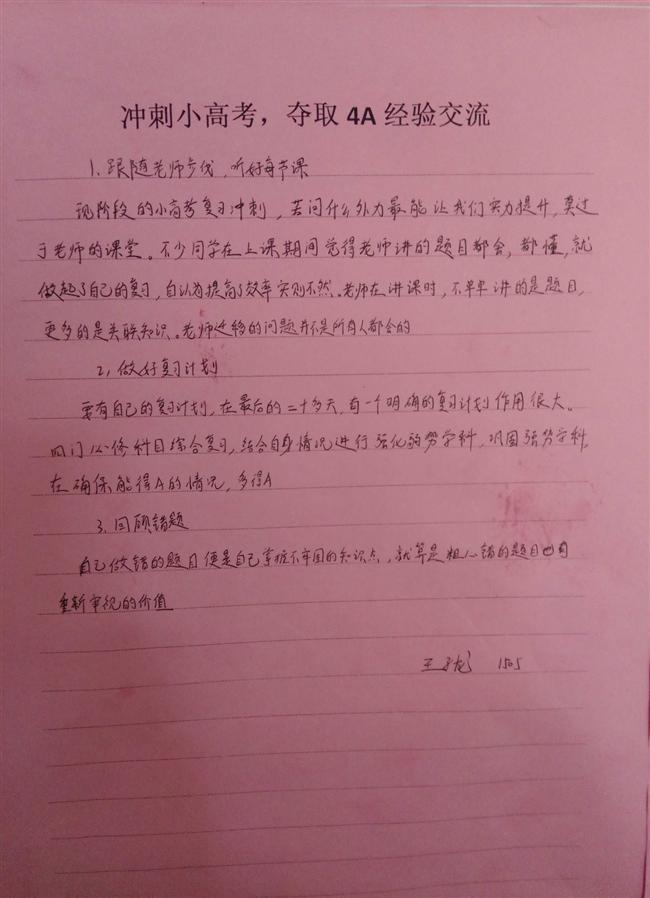 冲刺小高考，夺取 4A 经验交流
1. 跟随老师步伐，听好每节课
现阶段的小高考复习冲刺，若问什么外力最能让我们实力提升，莫过
于老师的课堂。不少同学在上课期间觉得老师讲的题目都会，都懂，就
做起了自己的复习，自认为提高了效率实则不然。老师在讲课时，不单单讲的是题目，
更多的是关联知识。老师迁移的问题并不是所有人都会的
2，做好复习计划
要有自己的复习计划，在最后的二十多天，有一个明确的复习计划作用很大。
四门必修科目综合复习，结合自身情况进行强化弱势学科，巩固强势学科，
在确保能得A的情况，多得A
3. 回顾错题
自己做错的题目便是自己掌握不牢固的知识点，就算是粗心错的题目也有
重新审视的价值
王 龙 1505